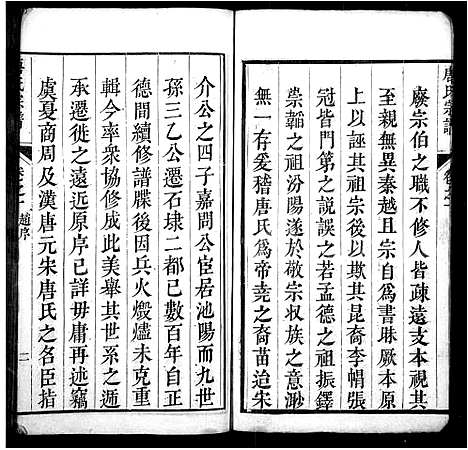 唐氏宗譜
廢宗伯之職不修人皆疎遠支本視其
至親無異秦越且宗自為書昧厥本原
上以誣其祖宗後以欺其昆裔李帽張
冠皆門第之說誤之若孟德之祖振鐸
崇韜之祖汾陽遂於敬宗収族之意渺
無一存爰稽唐氏為帝堯之裔苗迨朱
介公之四子嘉問公宦居池陽而九世
孫三乙公遷石埭二都已數百年自正
德間續修譜牒後因兵火燬燼未克重
輯今率衆協修此美舉其世系之遞
承遷徙之遠近原序已詳毋庸再述竊
虞夏商周及漢唐元朱唐氏之名臣指
趙序
二